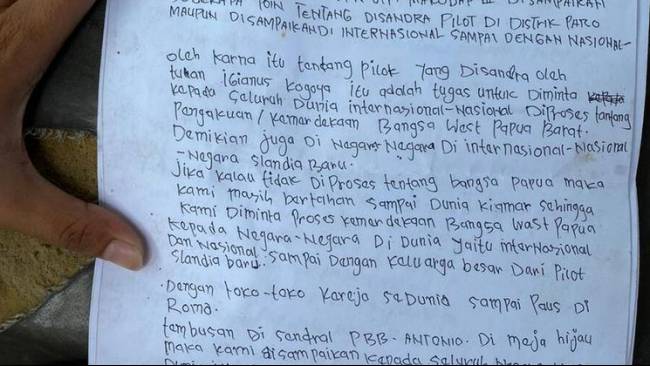 POIN TENTANG DISANDRA PILOT DI DISTRIK PARO
MAUPUN DISAMPAIKANDI INTERNASIONAL SAMPAI DENGAN NASIONAL-
Oleh Karna itu tentang pilot yang Disandra oleh
tuhan IGianus Kogoya itu adalah tugas untuk Diminta
kepada Seluruh Dunia internasional-Nasional DiProses tantang
Pengakuan/ kamardekaan Bangsa West Papua Barat.
Demikian juga Di Negara Negara Di internasional-Nasional
-Negara Slandia Baru.
Jika kalau tidak DiProses tentang bangsa Papua maka
kami masih bertahan sampai Dunia kiamar sehingga
kami Diminta Proses kemardekaan Bangsa West Papua
kepada Negara-Negara Di Dunia yaitu internasional
Dan Nasional. sampai Dengan Keluarga besar Dari Pilot
Slandia baru.
. Dengan toko-toko Kareja seDunia sampai Paus Di
Roma.
tambusan Di Sandral PBB-ANTONIO. Di meja hijau
maka kami disampaikan kepada Seluruh